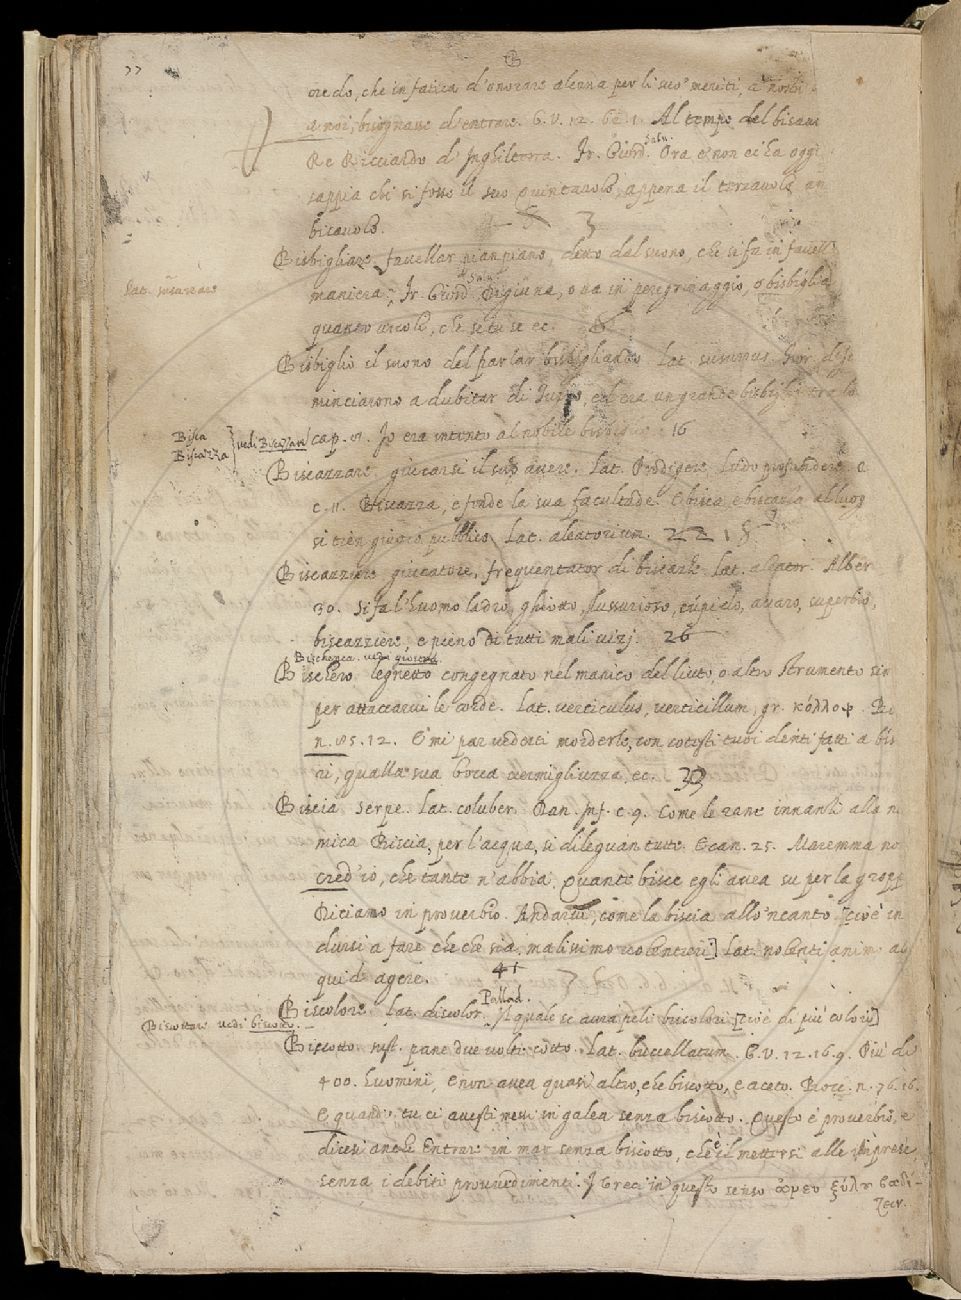 77
B
credo, che in fatica d'onorare alcuna per li suo' meriti, a' nostri
a noi, bisognasse d'entrare. G. V. 12. Al tempo del bisavo
Re Ricciardo d'Inghilterra. Fr. Giord. Salu. Ora e' non ci ha oggi
sappia chi si fosse il suo quintavolo, appena il terzavolo
bisavolo.
Bisbigliare favellar pian piano, detto dal suono, che si fa in favell
lat. susurrare
maniera. Fr. Giord. Salu. Digiuna, o va in peregrinaggio, o bisbiglia
quanto vuoli, che se tu se ec.
Bisbiglio il suono del parlar bisbigliando. lat. susurrus.
minciarono a dubitar di, ed era un grande bisbiglio tra lo
Bisca
Biscazza
vedi Biscazzare
cap. Io era intento al nobile bisbiglio 16
Biscazzare giucarsi il suo avere. Lat. Prodigere, ludo profundere.
c. 11. Biscazza, e fonde la sua facultade. E bisca, e biscazza al luog
si tien giuoco pubblico Lat. aleatorium. 22
Biscazziere giucatore, frequentator di biscazze lat. aleator. Alber
30. Si fa l'huomo ladro, ghiotto, lussurioso, cupido, avaro, superbio,
biscazziere, e pieno di tutti mali vizj. 26
Bischenca. vedi
Bischero legnetto congegnato nel manico del liuto, o altro strumento sim
per attaccarvi le corde. Lat. verticulus, verticillum, gr. κόλλοψ. Bo
n. 85. 12. E mi par vederti morderle, con cotesti tuoi denti fatti a bis
ri, quella sua bocca vermigliuzza, ec. 33
Biscia Serpe. Lat. coluber. Dan. Inf. c. 9. Come le rane innanzi alla n
mica Biscia, per l'acqua, si dileguan tutte. E can. 25. Maremma no
cred'io, che tante n'abbia, Quante bisce egli avea su per la gropp
Diciamo in proverbio. Andarvi, come la biscia allo 'ncanto [cioè in
dursi a fare che che sia, malissimo volentieri] Lat. nolenti animo al
quid agere. 41
Pallad.
Biscolore Lat. discolor. Il quale se avra peli biscolori [cioè di più colori]
Biscottare vedi biscotto.
Biscotto sust. pane due volte cotto. Lat. buccellatum. G. V. 12. 16. 9. Più di
400. huomini, e non avea quasi altro, che biscotto, e aceto. Bocc. n. 76. 16.
E quando tu ci avesti messi in galea senza biscotto. Questo è proverbio, e
dicesi anche Entrare in mar senza biscotto, che è il mettersi alle imprese
senza i debiti provvedimenti. I Greci in questo senso ἄνευ ξύλου βαδί-
ζειν.